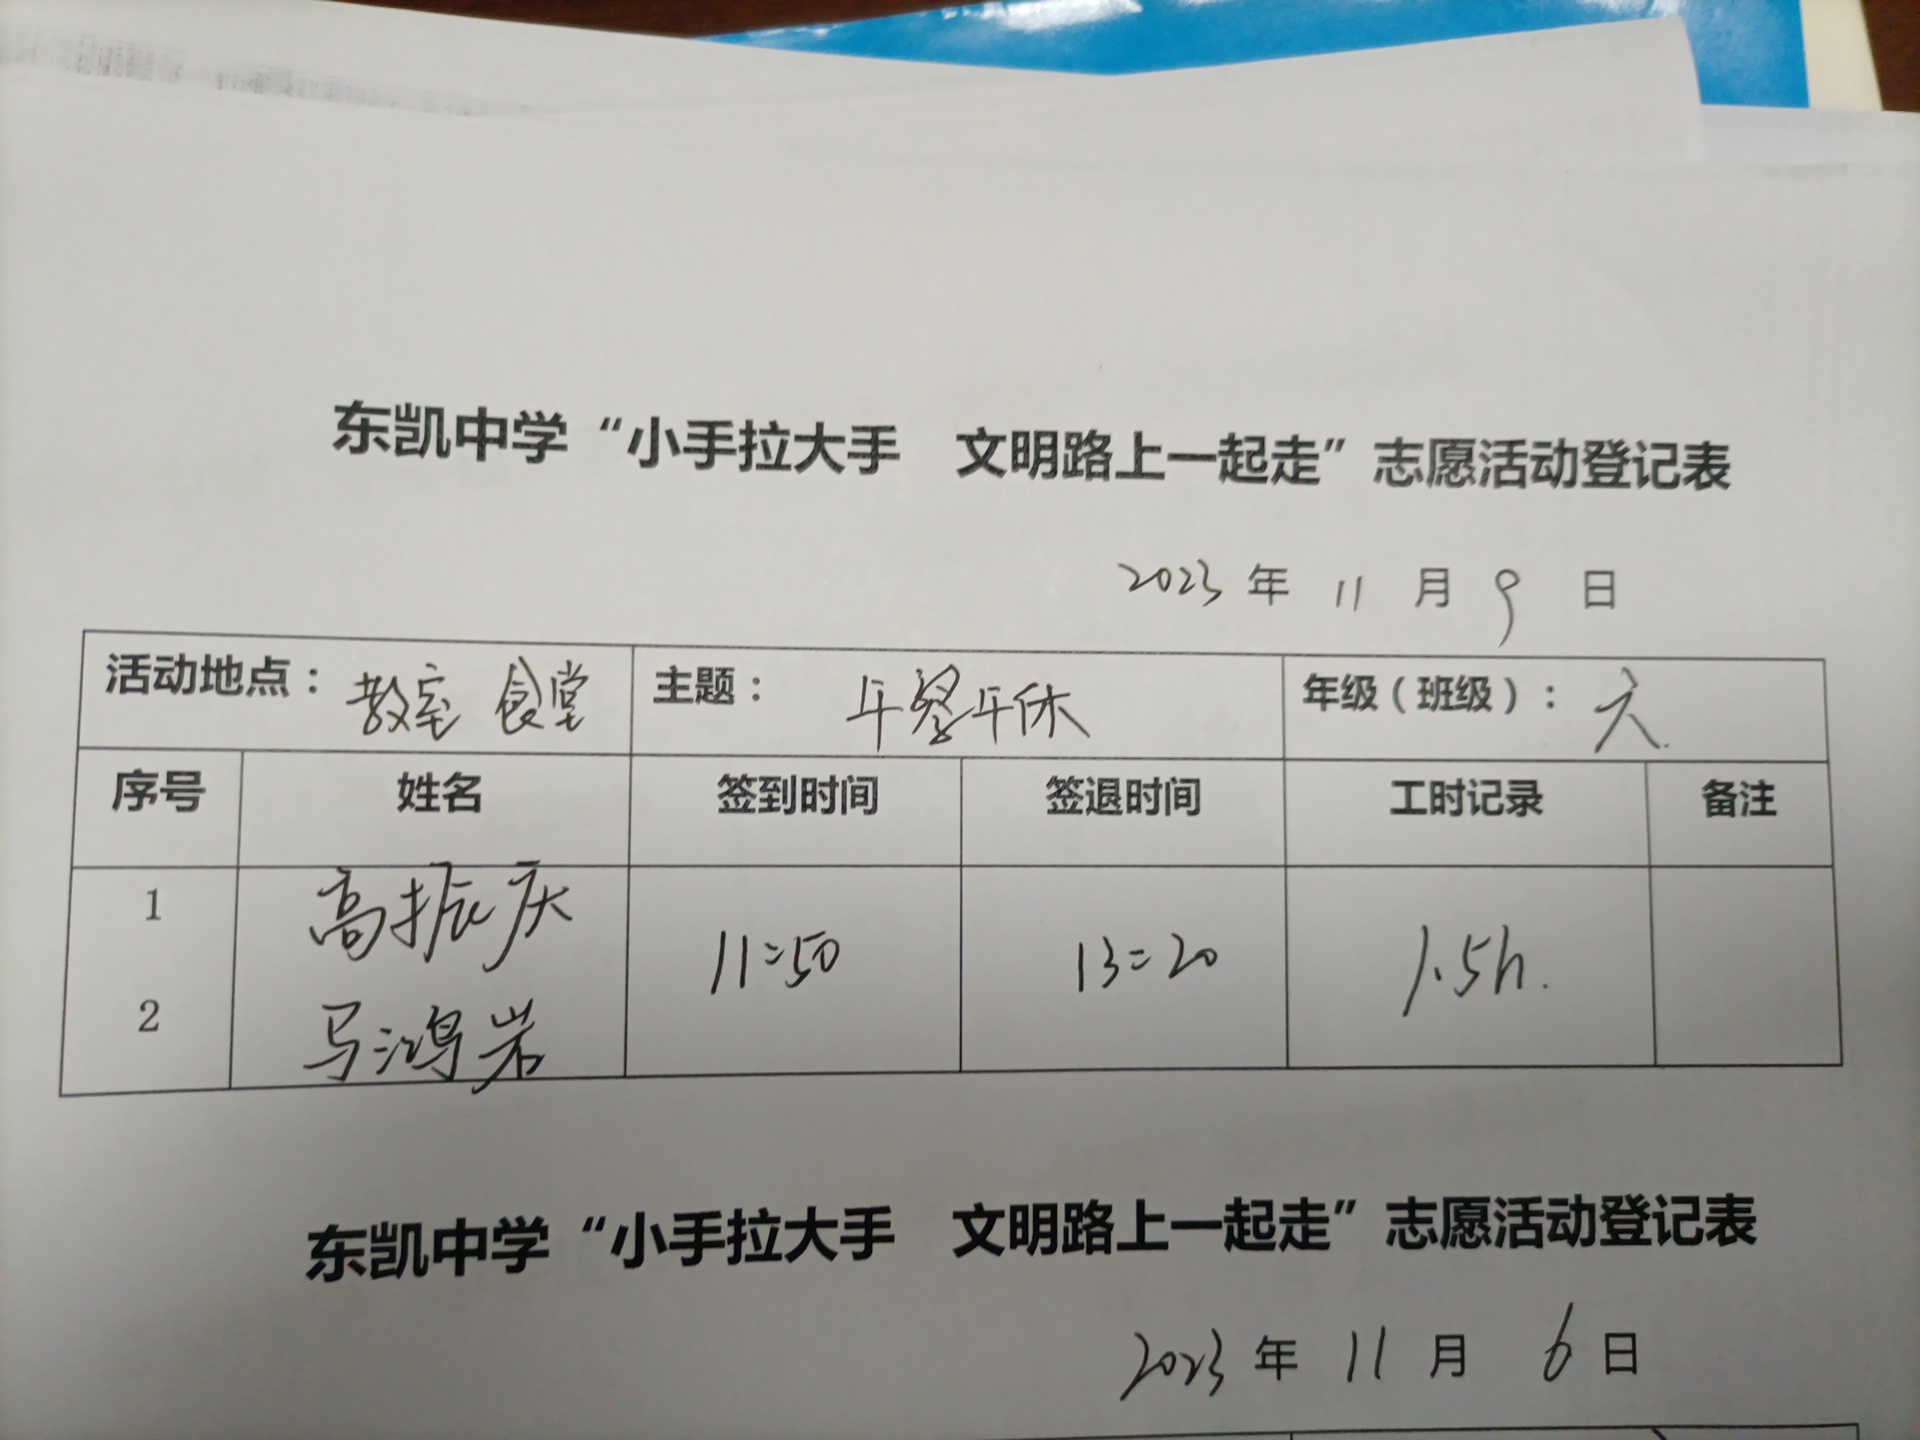 东凯中学“小手拉大手 文明路上一起走”志愿活动登记表
2023 年 11 月 9 日
活动地点：教室 食堂 主题：午餐午休 年级（班级）：六
序号 姓名 签到时间 签退时间 工时记录 备注
1 高振庆
11:50 13:20 1.5h.
2 马鸿岩
东凯中学“小手拉大手 文明路上一起走”志愿活动登记表
2023 年 11 月 6 日